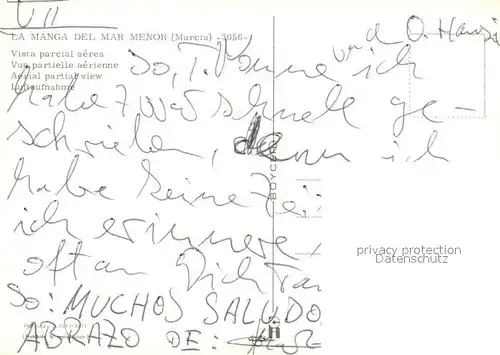 VII
LA MANGA DEL MAR MENOR (Murcia) -3056-
und O. Hansi
Vista parcial aérea
Vue partielle aérienne
Aerial partial view
Luftaufnahme
So, T. ich
habe zwar schnell ge-
schrieben, denn ich
habe keine Zei
ich erinnere
oft an Dich
SO: MUCHOS SALUDO
ABRAZO DE:
BOYCER
privacy protection
Datenschutz